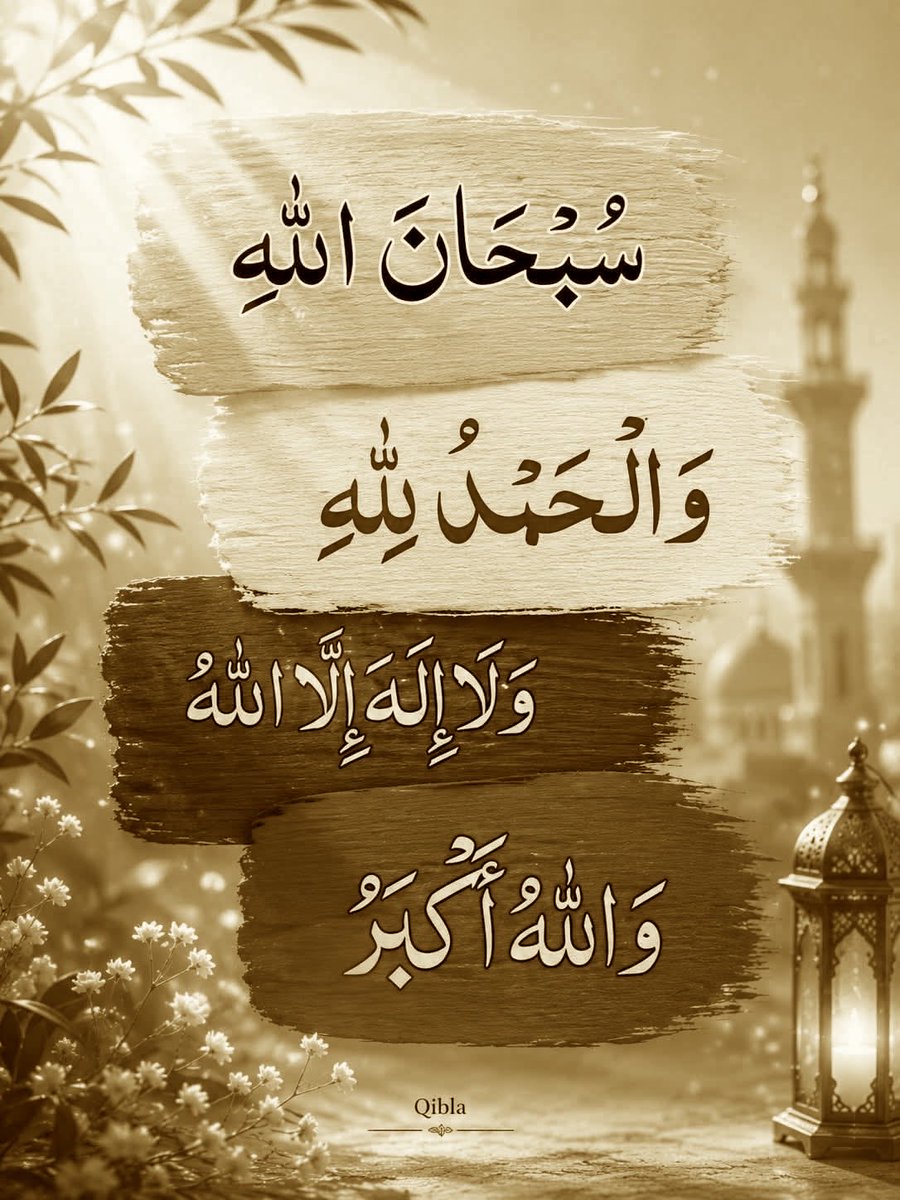 سُبْحَانَ اللّٰهِ
وَالْحَمْدُ لِلّٰهِ
وَلَا إِلَهَ إِلَّا اللّٰهُ
وَاللّٰهُ أَكْبَرُ
Qibla